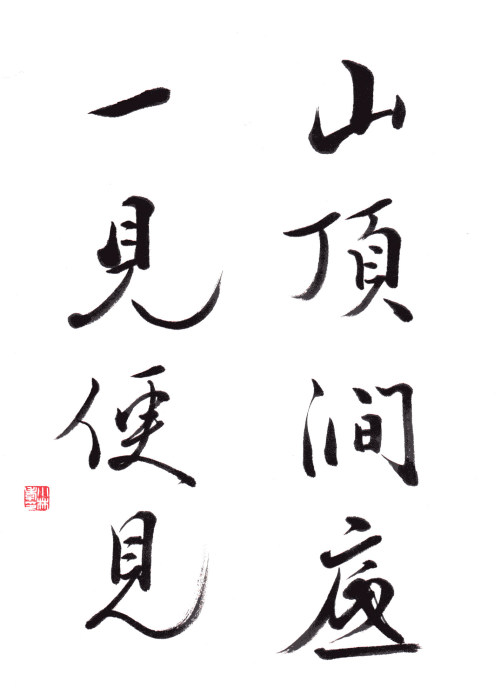 山頂澗底
一見便見
小林